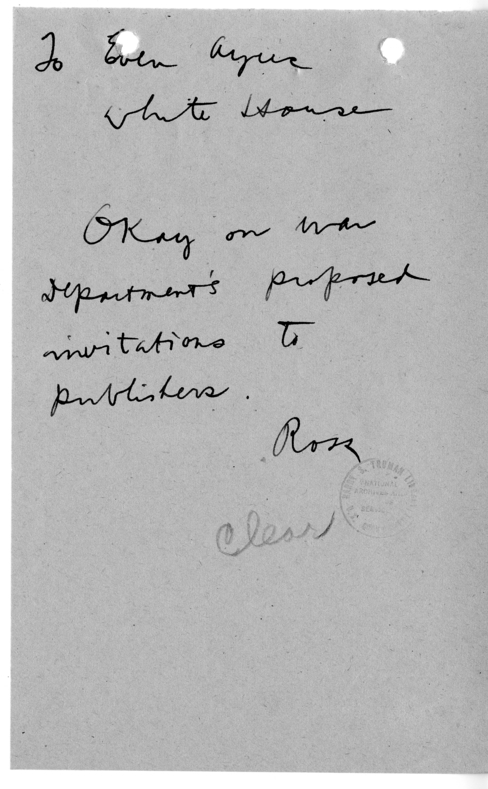 To Eben Ayers
White House
Okay on War
Department's proposed
invitations to
publishers.
Ross
clear
HARRY S. TRUMAN
NATIONAL